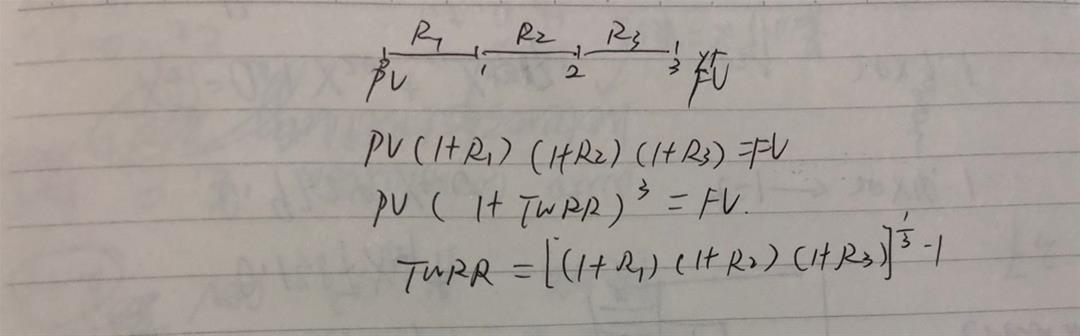 R₁ R₂ R₃
0 1 2 3
PV FV
PV (1+R₁) (1+R₂) (1+R₃) = FV
PV ( 1 + TWRR )³ = FV.
TWRR = [(1+R₁) (1+R₂) (1+R₃)]^(1/3) - 1